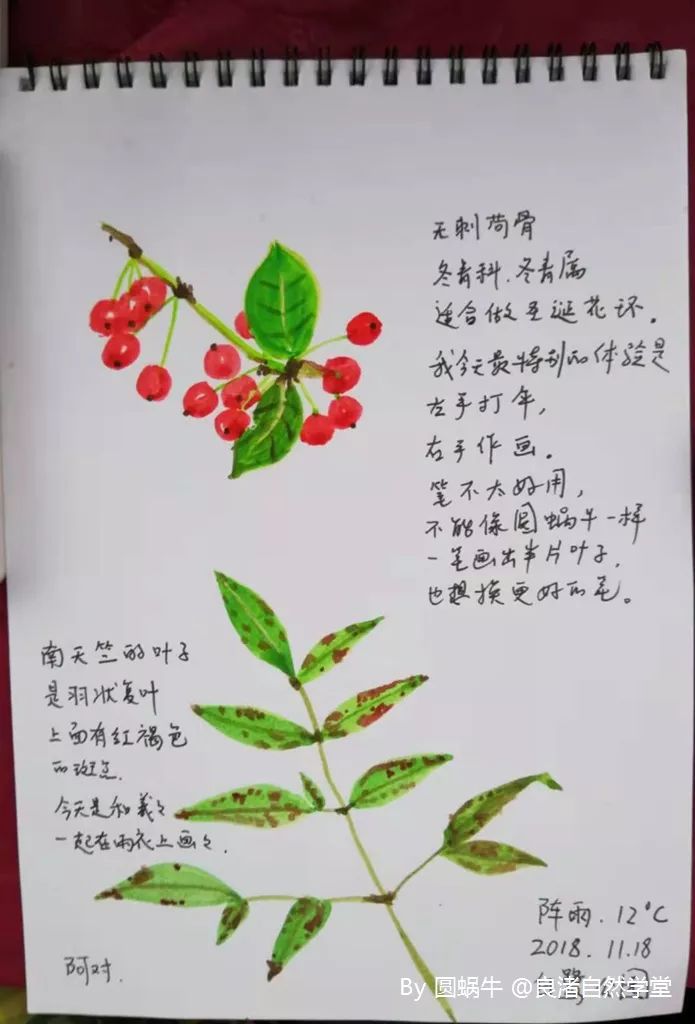 无刺苟骨
冬青科.冬青属
适合做圣诞花环。
我今天最特别的体验是
左手打伞,
右手作画。
笔不太好用,
不能像圆蜗牛一样
一笔画出半片叶子,
也想换更好的笔。
南天竺的叶子
是羽状复叶
上面有红褐色
的斑点.
今天是和義々
一起在雨衣上画々.
阿对.
阵雨.12°C
2018.11.18
路
By 圆蜗牛 @良渚自然学堂